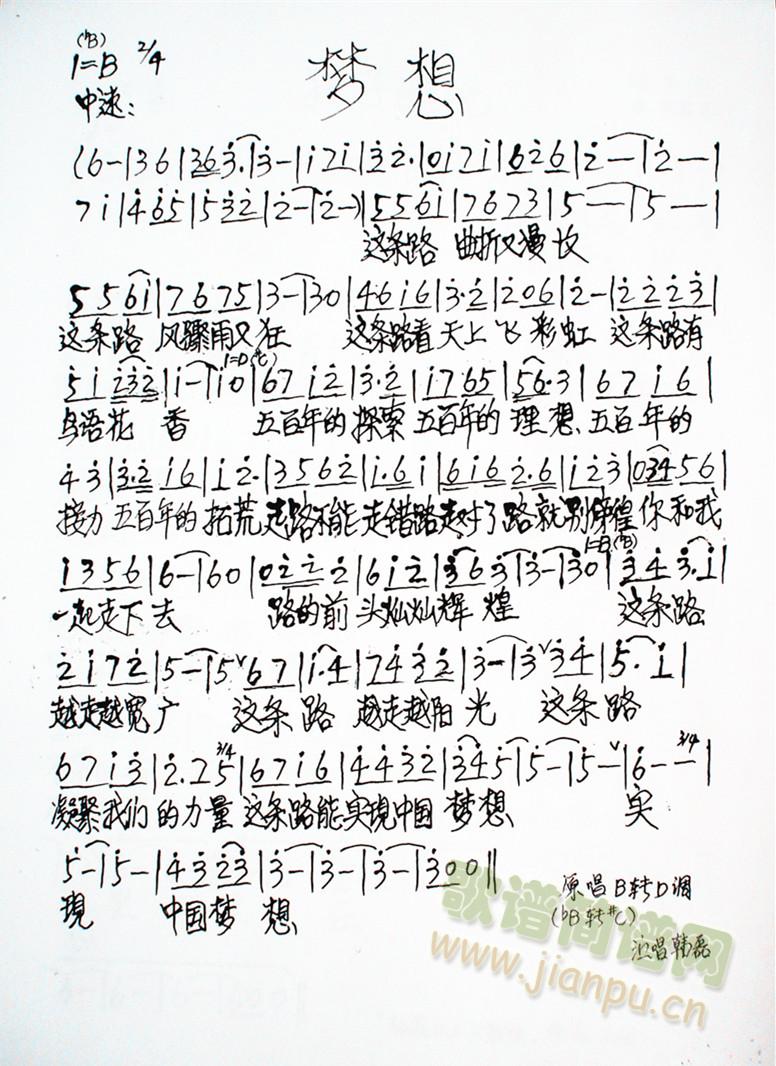 (bB)
1=B 2/4
梦想
中速:
(6-|36|363.|3-|i7i|32.|0i7i|626|2-|2-|
7i|465|532|2-|2-)|556i|7673|5-|5-|
这条路 曲折又漫长
556i|7675|3-|30|46i6|3.2|206|2-|2223|
这条路 风骤雨又狂 这条路看天上飞彩虹 这条路有
1=D(#C)
5i232|i-|i0|67i2|3.2|i765|56.3|67i6|
鸟语花 香 五百年的探索五百年的理想五百年的
43|3.2i6|i2.|3562|i.6i|6i62.6|i23|03456|
接力五百年的拓荒走路不能走错路走对了路就别彷徨你和我
1=B(bB)
1356|6-|60|0222|6i2|363|3-|30|343.i|
一起走下去 路的前头灿灿辉煌 这条路
2i72|5-|5ˇ67|i.4|7432|3-|3ˇ34|5.i|
越走越宽广 这条路 越走越阳光 这条路
67i3|2.25 3/4|67i6|4432|345|5-|5-ˇ|6-- 3/4|
凝聚我们的力量 这条路能实現中国梦想 实
5-|5-|4323|3-|3-|3-|300‖
現 中国梦想
原唱B转D调
(bB转#C)
演唱韩磊
歌谱简谱网
www.jianpu.cn